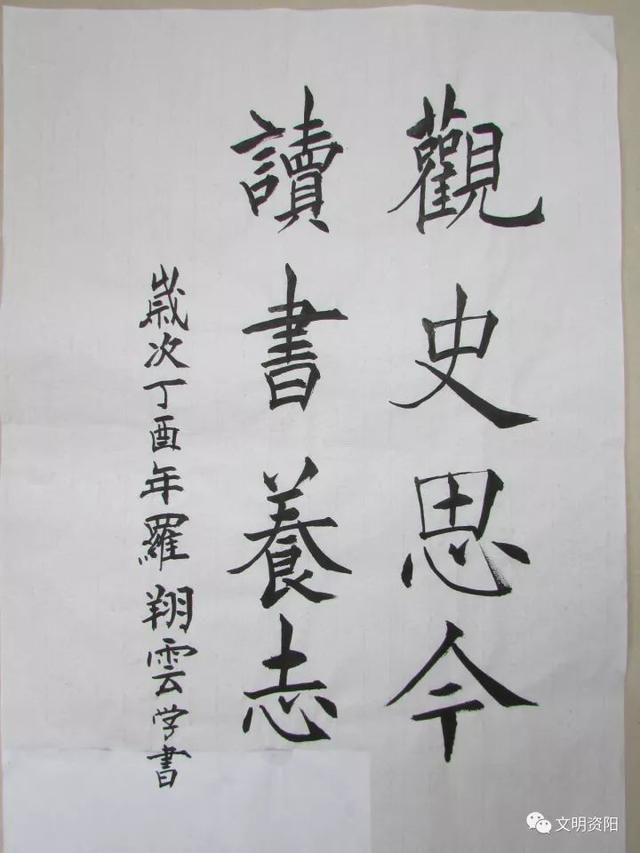 觀史思今
讀書養志
歲次丁酉年羅翔雲学書
文明资阳